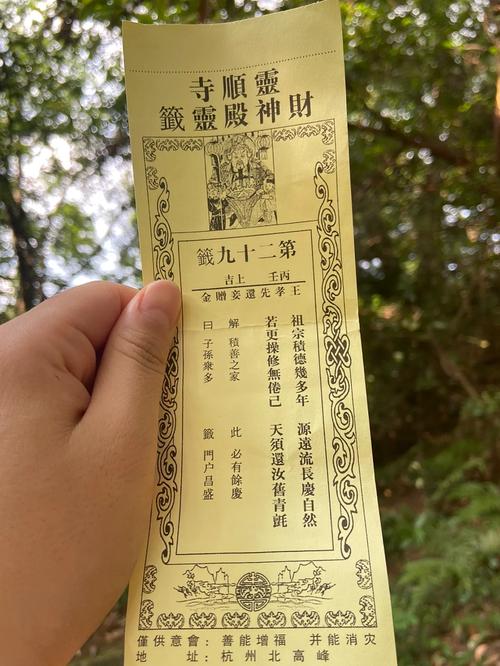 靈順寺
財神殿靈籤
第二十九籤
丙壬 上吉
王孝先還妾贈金
祖宗積德幾多年 源遠流長慶自然
若更操修無倦己 天須還汝舊青氈
解 積善之家 此 必有餘慶
曰 子孫衆多 籤 門户昌盛
僅供意會：善能增福 并能消灾
地 址：杭州北高峰